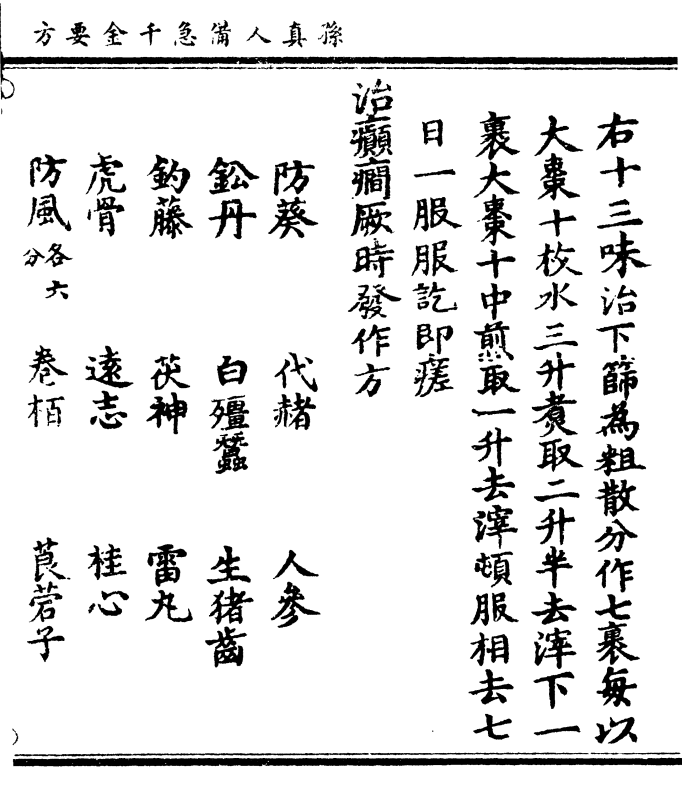 孫真人備急千金要方
右十三味治下篩為粗散分作七裹每以
大棗十枚水三升煑取二升半去滓下一
裹大棗十中煎取一升去滓頓服相去七
日一服服訖即瘥
治癲癇厥時發作方
防葵 代赭 人參
鈆丹 白殭蠶 生猪齒
釣藤 茯神 雷丸
虎骨 遠志 桂心
防風各六分 卷栢 莨菪子